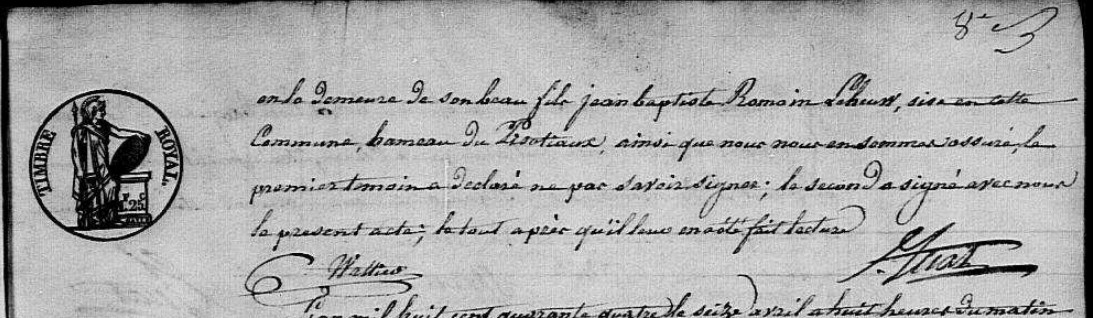 8e
TIMBRE ROYAL.
F. C.
1.25
en la demeure de son beau fils jean baptiste Romain Leheux, sise en cette
Commune, hameau du ainsi que nous nous en sommes assuré, le
premier temoin a declaré ne pas savoir signer; le second a signé avec nous
le present acte; le tout après qu'il leur en a été fait lecture
l'an mil huit cent quarante quatre le seize avril a huit heures du matin